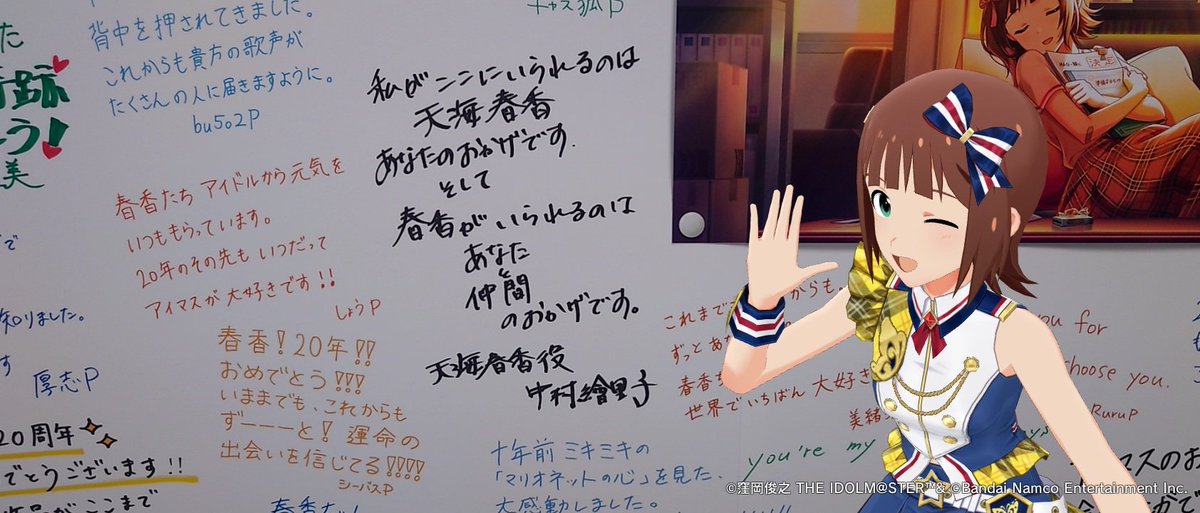 う!
美
背中を押されてきました。
これからも貴方の歌声が
たくさんの人に届きますように。
bu502P
春香たち アイドルから元気を
いつももらっています。
20年のその先も いつだって
アイマスが大好きです!!
しょうP
知りました。
厚志P
春香!20年!!
おめでとう!!!
いままでも、これからも
ずーーーと! 運命の
出会いを信じてる!!!!
シーバスP
20周年
でとうございます!!
私がここにいられるのは
天海春香
あなたのおかげです.
そして
春香がいられるのは
あなた
と
仲間
のおかげです。
天海春香役
中村繪里子
十年前 ミキミキの
「マリオネットの心」を見た.
大感動しました.
決定
これまで
からも。
ずっとあ
春香
世界でいちばん 大好き
美緒
you for
choose you.
RuruP
you're my
©窪岡俊之 THE IDOLM@STER™& ©Bandai Namco Entertainment Inc.